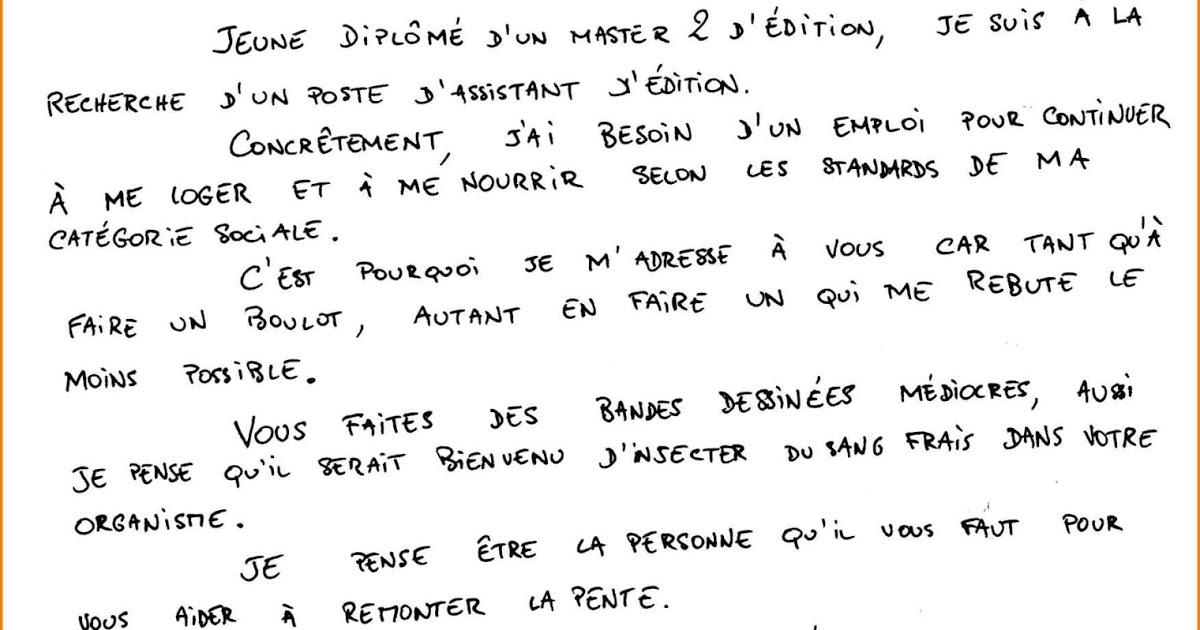 JEUNE DIPLÔMÉ D'UN MASTER 2 D'ÉDITION, JE SUIS A LA
RECHERCHE D'UN POSTE D'ASSISTANT D'ÉDITION.
CONCRÊTEMENT, J'AI BESOIN D'UN EMPLOI POUR CONTINUER
À ME LOGER ET À ME NOURRIR SELON LES STANDARDS DE MA
CATÉGORIE SOCIALE.
C'EST POURQUOI JE M'ADRESSE À VOUS CAR TANT QU'À
FAIRE UN BOULOT, AUTANT EN FAIRE UN QUI ME REBUTE LE
MOINS POSSIBLE.
VOUS FAITES DES BANDES DESSINÉES MÉDIOCRES, AUSSI
JE PENSE QU'IL SERAIT BIENVENU D'INSECTER DU SANG FRAIS DANS VOTRE
ORGANISME.
JE PENSE ÊTRE LA PERSONNE QU'IL VOUS FAUT POUR
VOUS AIDER À REMONTER LA PENTE.